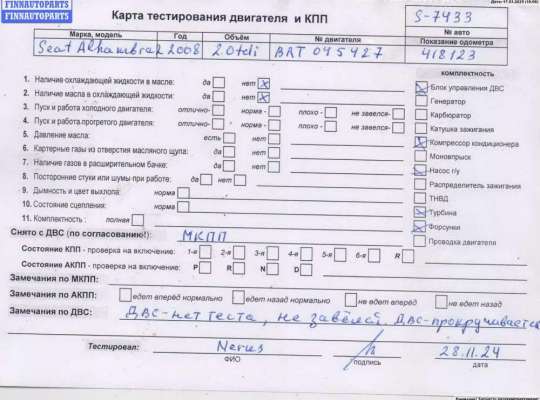 FINNAUTOPARTS
FINNAUTOPARTS
Карта тестирования двигателя и КПП
S-7433
Марка, модель Год Объём № двигателя № авто
Показание одометра
Seat Alhambra 2 2008 2.0tdi BRT 045427 418123
комплектность
1. Наличие охлаждающей жидкости в масле: да нет
Блок управления ДВС
2. Наличие масла в охлаждающей жидкости: да нет
Генератор
3. Пуск и работа холодного двигателя: отлично- норма - плохо - не завелся-
Карбюратор
4. Пуск и работа прогретого двигателя: отлично- норма - плохо - не завелся-
Катушка зажигания
5. Давление масла: есть нет
Компрессор кондиционера
6. Картерные газы из отверстия масляного щупа: да нет
Моновпрыск
7. Наличие газов в расширительном бачке: да нет
Насос г/у
8. Посторонние стуки или шумы при работе: да нет
Распределитель зажигания
9. Дымность и цвет выхлопа: норма
ТНВД
10. Состояние сцепления: норма
Турбина
11. Комплектность : полная
Форсунки
Снято с ДВС (по согласованию!): МКПП
Проводка двигателя
Состояние КПП - проверка на включение: 1-я 2-я 3-я 4-я 5-я 6-я R
Состояние АКПП - проверка на включение: P R N D
Замечания по МКПП:
Замечания по АКПП: едет вперёд нормально едет назад нормально не едет вперёд не едет назад
Замечания по ДВС: ДВС-нет теста, не завёлся. ДВС-прокручивается
Тестировал: Nerus 28.11.24
ФИО подпись дата